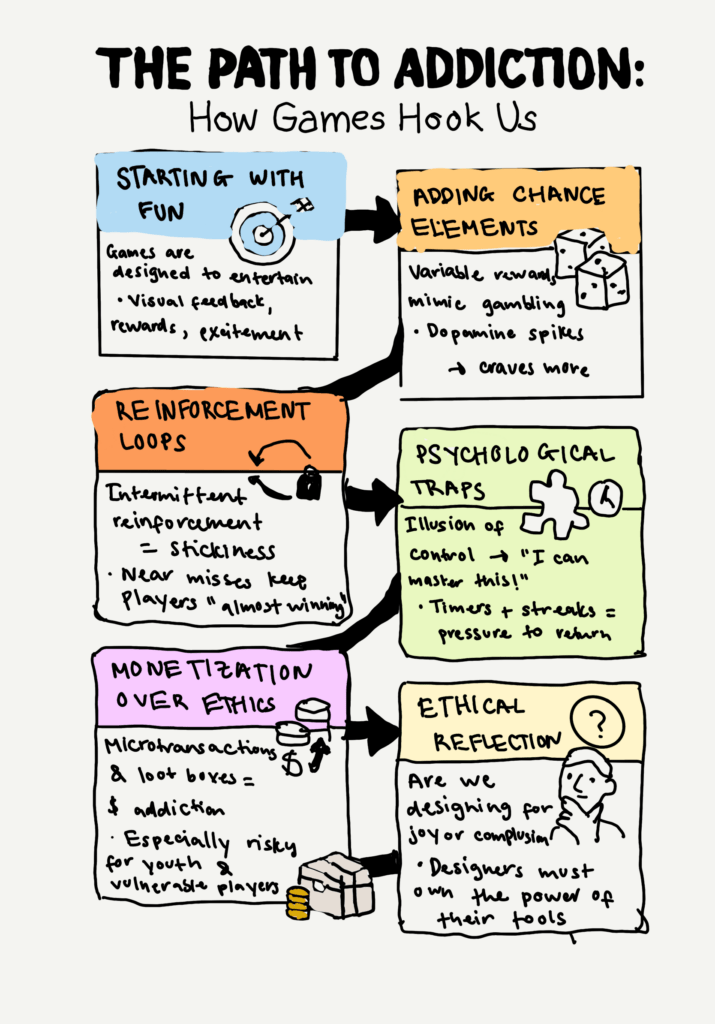 THE PATH TO ADDICTION:
How Games Hook Us
STARTING WITH
FUN
Games are
designed to entertain
• Visual feedback,
rewards, excitement
ADDING CHANCE
ELEMENTS
Variable rewards
mimic gambling
• Dopamine spikes
→ craves more
REINFORCEMENT
LOOPS
Intermittent
reinforcement
= stickiness
• Near misses keep
players "almost winning"
PSYCHOLOGICAL
TRAPS
Illusion of
control → "I can
master this!"
• Timers + streaks =
pressure to return
MONETIZATION
OVER ETHICS
$
Microtransactions
& loot boxes =
$ addiction
• Especially risky
for youth &
vulnerable players
ETHICAL
REFLECTION
?
Are we
designing for
joy or complusion
• Designers must
own the power of
their tools